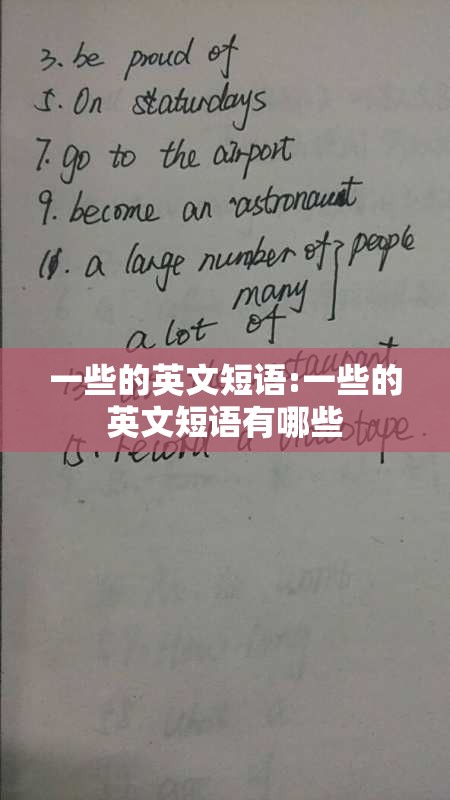 3. be proud of
5. On staturdays
7. go to the airport
9. become an astronaut
11. a large number of people
many
a lot of
一些的英文短语:一些的
英文短语有哪些
15. record a videotape.